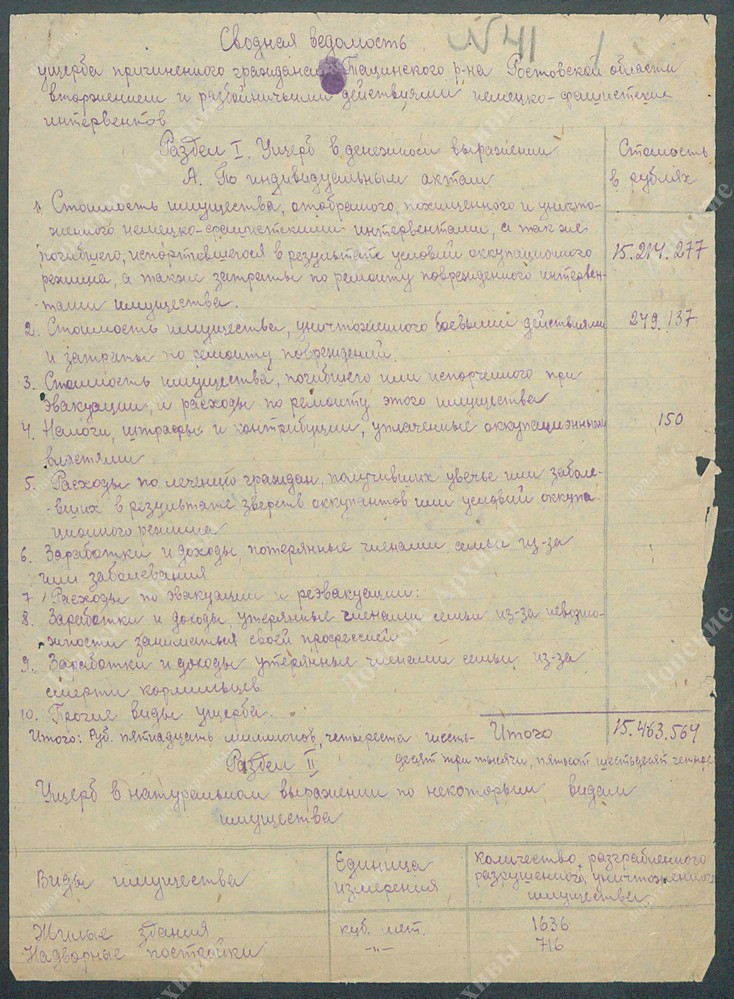 Сводная ведомость
№ 41 1
ущерба причиненного гражданам Тацинского р-на Ростовской области
вторжением и разбойничьими действиями немецко-фашистских
интервентов
Раздел I. Ущерб в денежном выражении
А. По индивидуальным актам
Стоимость
в рублях
1. Стоимость имущества, отобранного, похищенного и уничто-
женного немецко-фашистскими интервентами, а также
погибшего, испортившегося в результате условий оккупационного 15.214.277
режима, а также затраты по ремонту поврежденного интервен-
-тами имущества.
2. Стоимость имущества, уничтоженного боевыми действиями 249.137
и затраты по ремонту повреждений.
3. Стоимость имущества, погибшего или испорченного при
эвакуации, и расходы по ремонту этого имущества
4. Налоги, штрафы и контрибуции, уплаченные оккупационными 150
властями
5. Расходы по лечению граждан, получивших увечье или заболе-
-вших в результате зверств оккупантов или условий оккупа
ционного режима
6. Заработки и доходы, потерянные членами семьи из-за
или заболевания
7 Расходы по эвакуации и реэвакуации:
8. Заработки и доходы, утерянные членами семьи из-за невозмо-
жности заниматься своей профессией
9. Заработки и доходы утерянные членами семьи из-за
смерти кормильцев
10. Прочие виды ущерба.
Итого: руб. пятнадцать миллионов, четыреста шесть- Итого 15.463.564
десят три тысячи, пятьсот шестьдесят четыре
Раздел II
Ущерб в натуральном выражении по некоторым видам
имущества
Виды имущества
Единица
измерения
Количество, разграбленного
разрушенного, уничтоженного
имущества
Жилые здания куб. мет. 1636
Надворные постройки -"- 716
Донские Архивы